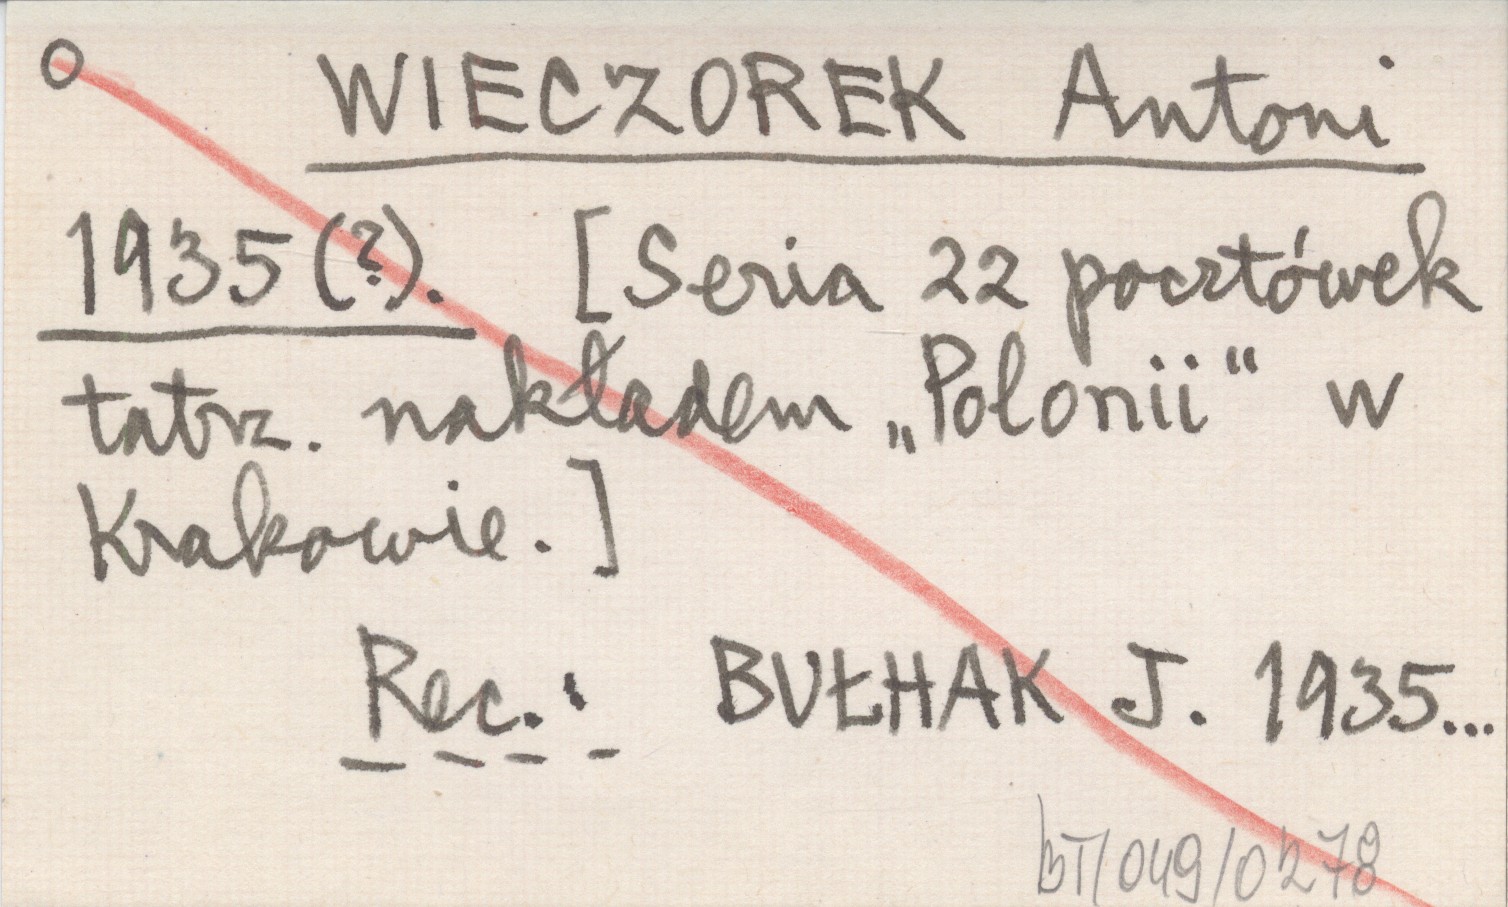 O WIECZOREK Antoni
1935(?). [Seria 22 pocztówek
tatrz. nakładem „Polonii“ w
Krakowie.]
Rec.: BUŁHAK J. 1935...
BT/049/0278